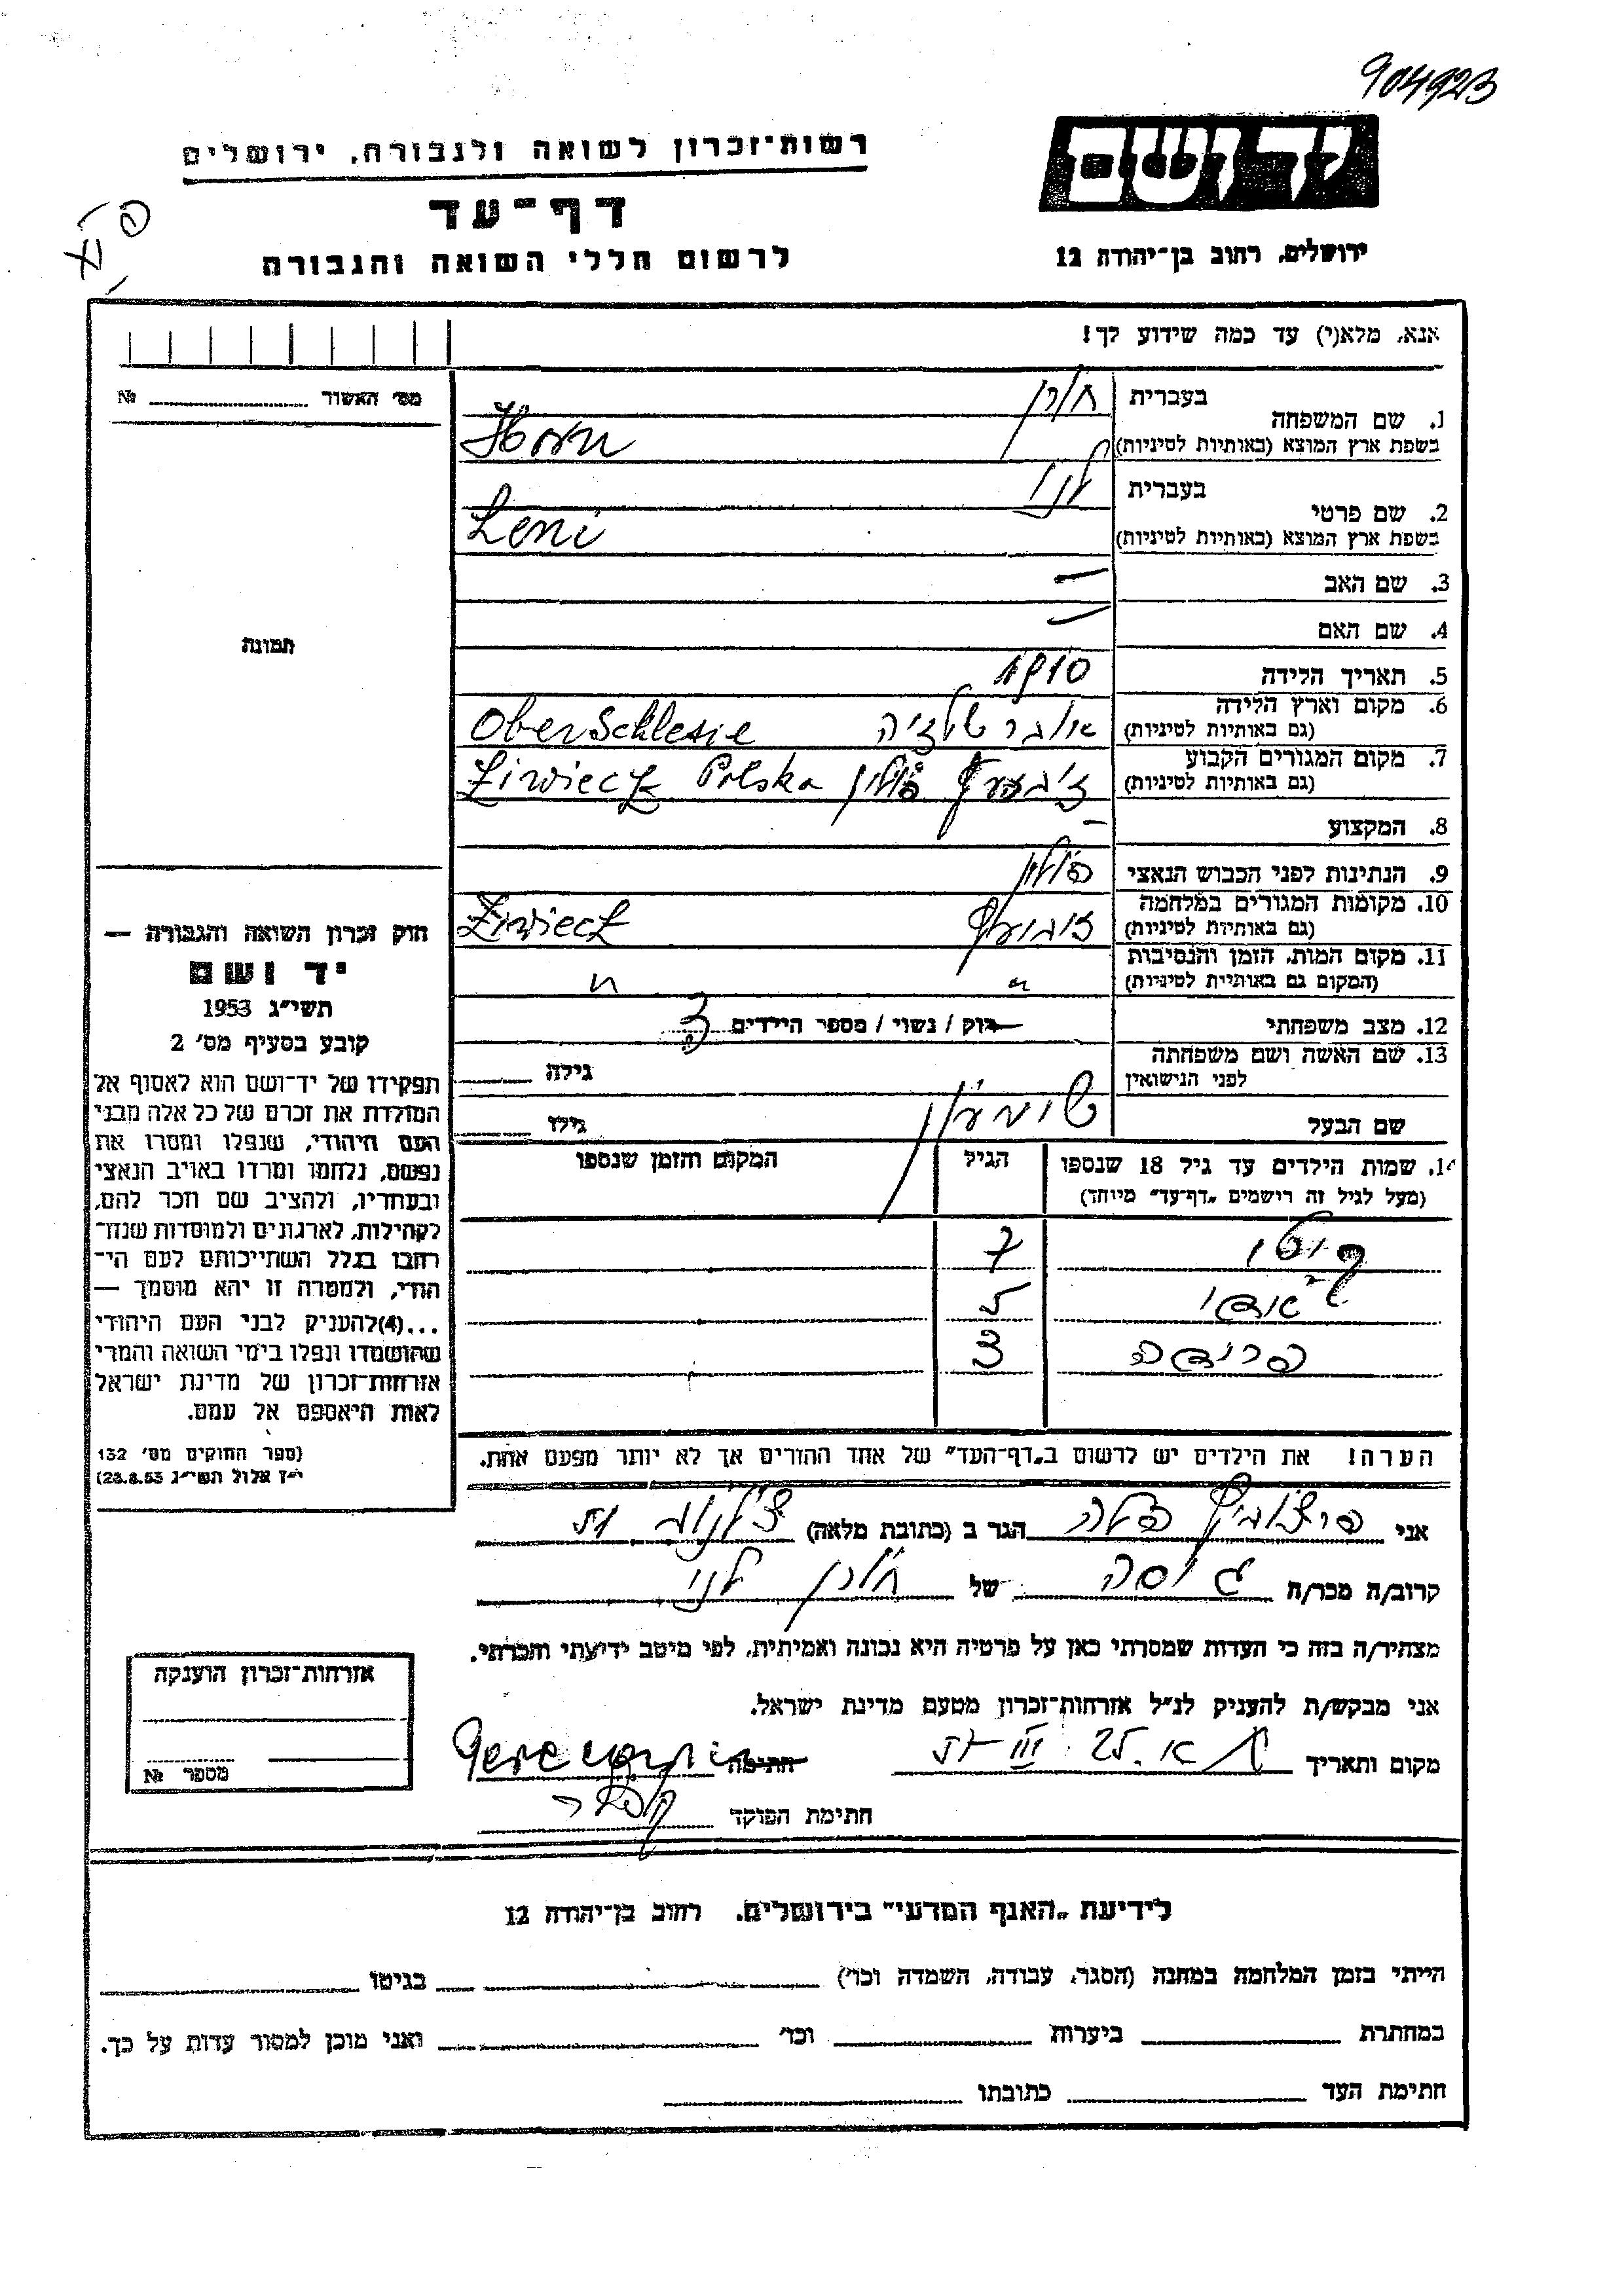 904923
יד ושם
רשות־זכרון לשואה ולגבורה, ירושלים
דף־עד
לרשום חללי השואה והגבורה
ירושלים, רחוב בן־יהודה 12
אנא, מלא(י) עד כמה שידוע לך!
מס׳ האשור № 
1. שם המשפחה בעברית
בשפת ארץ המוצא (באותיות לטיניות) Horn
2. שם פרטי בעברית לני
בשפת ארץ המוצא (באותיות לטיניות) Leni
3. שם האב —
4. שם האם —
5. תאריך הלידה 1910
6. מקום וארץ הלידה
(גם באותיות לטיניות) Ober Schlesie
7. מקום המגורים הקבוע
(גם באותיות לטיניות) פולין Żiwiec Polska
8. המקצוע —
9. הנתינות לפני הכבוש הנאצי פולין
10. מקומות המגורים במלחמה
(גם באותיות לטיניות) Żiwiec
11. מקום המות, הזמן והנסיבות
(המקום גם באותיות לטיניות) " "
12. מצב משפחתי רוק / נשוי / מספר הילדים 3
13. שם האשה ושם משפחתה
לפני הנישואין גילה
שם הבעל שמעון גילו
14. שמות הילדים עד גיל 18 שנספו הגיל המקום והזמן שנספו
(מעל לגיל זה רישמים „דף־עד" מיוחד)
7
5
פרידה 3
הערה! את הילדים יש לרשום ב„דף־העד" של אחד ההורים אך לא יותר מפעם אחת.
תמונה
חוק זכרון השואה והגבורה —
יד ושם
תשי״ג 1953
קובע בסעיף מס׳ 2
תפקידו של יד־ושם הוא לאסוף אל
המולדת את זכרם של כל אלה מבני
העם היהודי, שנפלו ומסרו את
נפשם, נלחמו ומרדו באויב הנאצי
ובעוזריו, ולהציב שם וזכר להם,
לקהילות, לארגונים ולמוסדות שנח־
רבו בגלל השתייכותם לעם הי־
הודי, ולמטרה זו יהא מוסמך —
...(4)להעניק לבני העם היהודי
שהושמדו ונפלו בימי השואה והמרי
אזרחות־זכרון של מדינת ישראל
לאות היאספם אל עמם.
(ספר החוקים מס׳ 132
י״ז אלול תשי״ג 28.8.53)
אני הגר ב (כתובת מלאה)
קרוב/ה מכר/ה גיסה של הורן לני
מצהיר/ה בזה כי העדות שמסרתי כאן על פרטיה היא נכונה ואמיתית, לפי מיטב ידיעתי והכרתי.
אני מבקש/ת להעניק לנ״ל אזרחות־זכרון מטעם מדינת ישראל.
מקום ותאריך ת״א 25. III חתימה
חתימת הפוקד
אזרחות־זכרון הוענקה
מספר №
לידיעת „האגף המדעי" בירושלים, רחוב בן־יהודה 12
הייתי בזמן המלחמה במחנה (הסגר, עבודה, השמדה וכו׳) בגיטו
במחתרת ביערות וכו׳ ואני מוכן למסור עדות על כך.
חתימת העד כתובתו